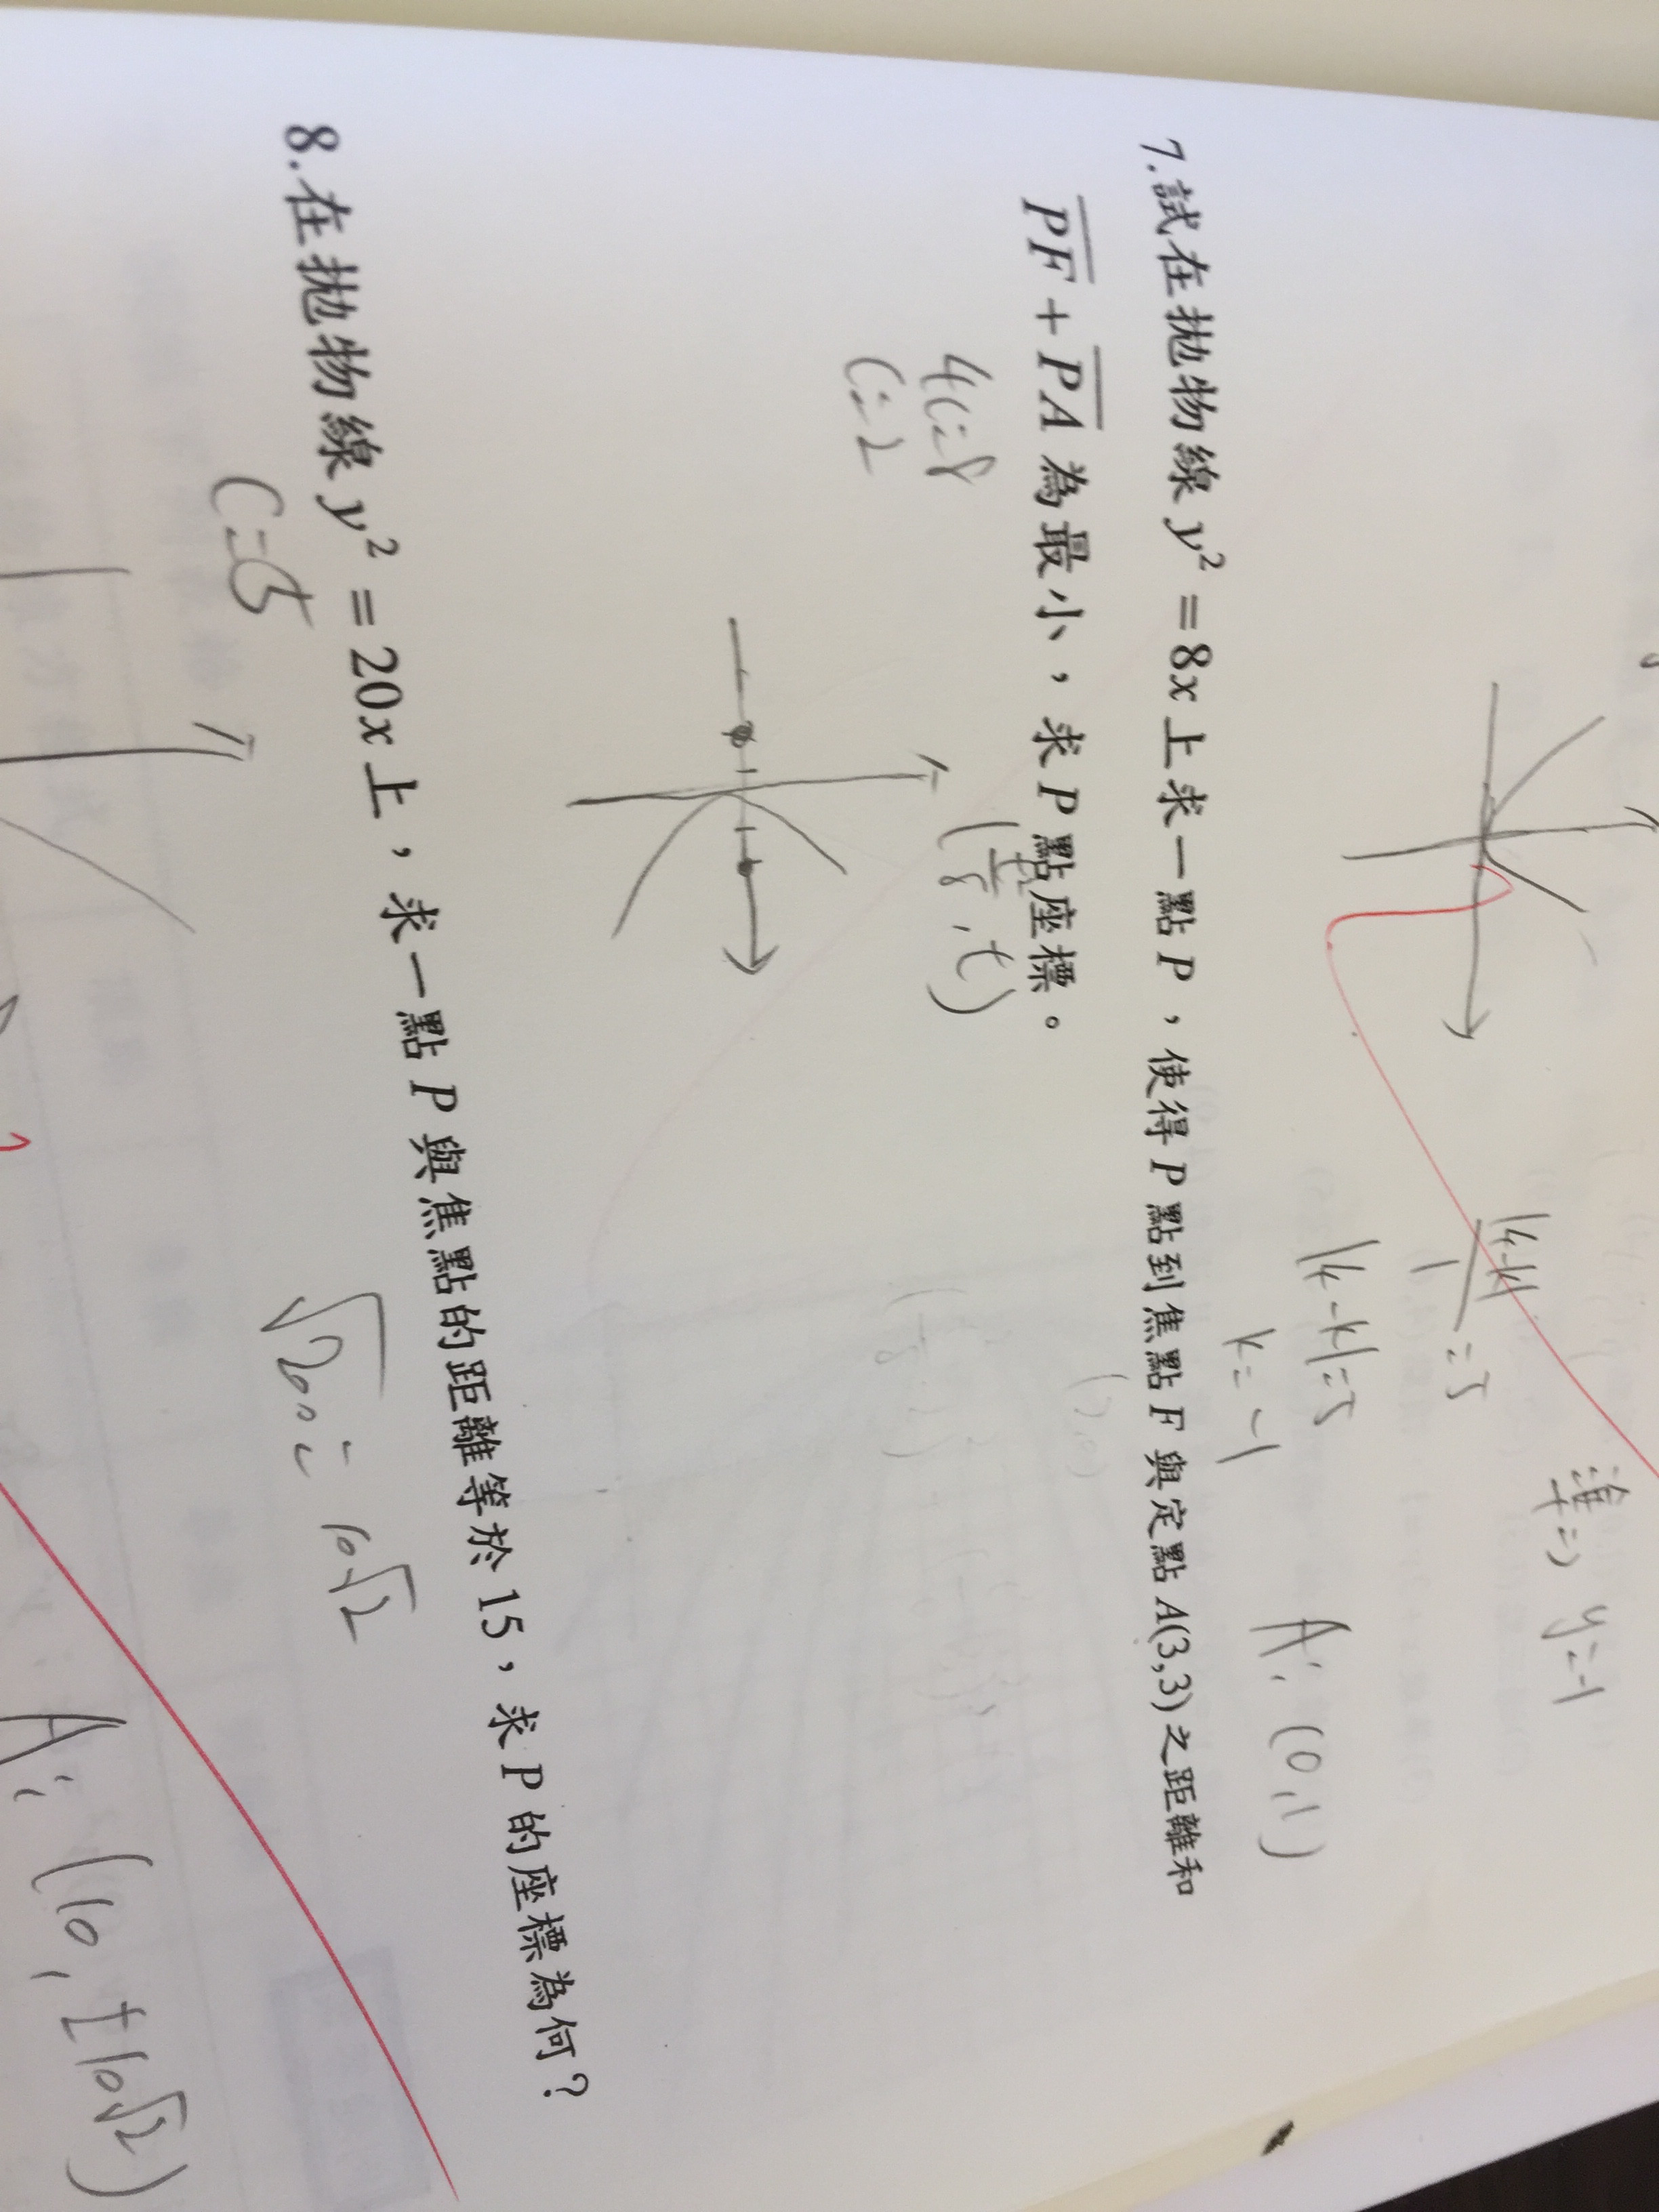 準⇒ y=-1
|4-k|/1=5
|4-k|=5
k=-1
A: (0,1)
7.試在拋物線 y²=8x 上求一點 P,使得 P 點到焦點 F 與定點 A(3,3) 之距離和
PF + PA 為最小,求 P 點座標。
(t²/8, t)
4c=8
c=2
8.在拋物線 y²=20x 上,求一點 P 與焦點的距離等於 15,求 P 的座標為何?
c=5
√200 = 10√2
A: (10, ±10√2)